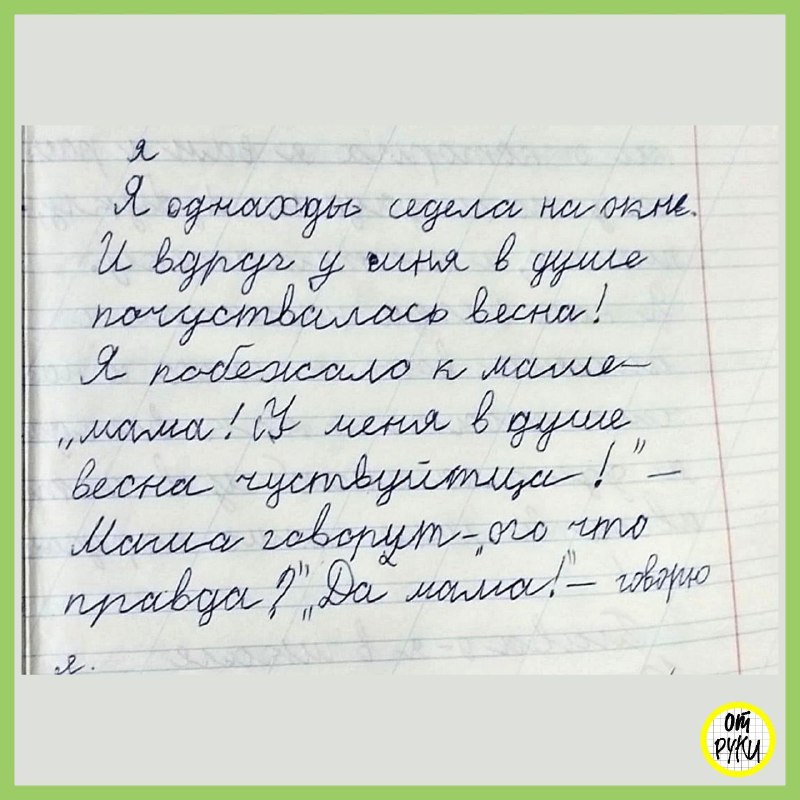 я
Я однажды седела на окне.
И вдруг у мня в душе
почуствалась весна!
Я побежало к маме –
„мама! У меня в душе
весна чуствуйтца!" –
Мама говорит – „ого что
правда?" „Да мама!" – говорю
я.
от
руки